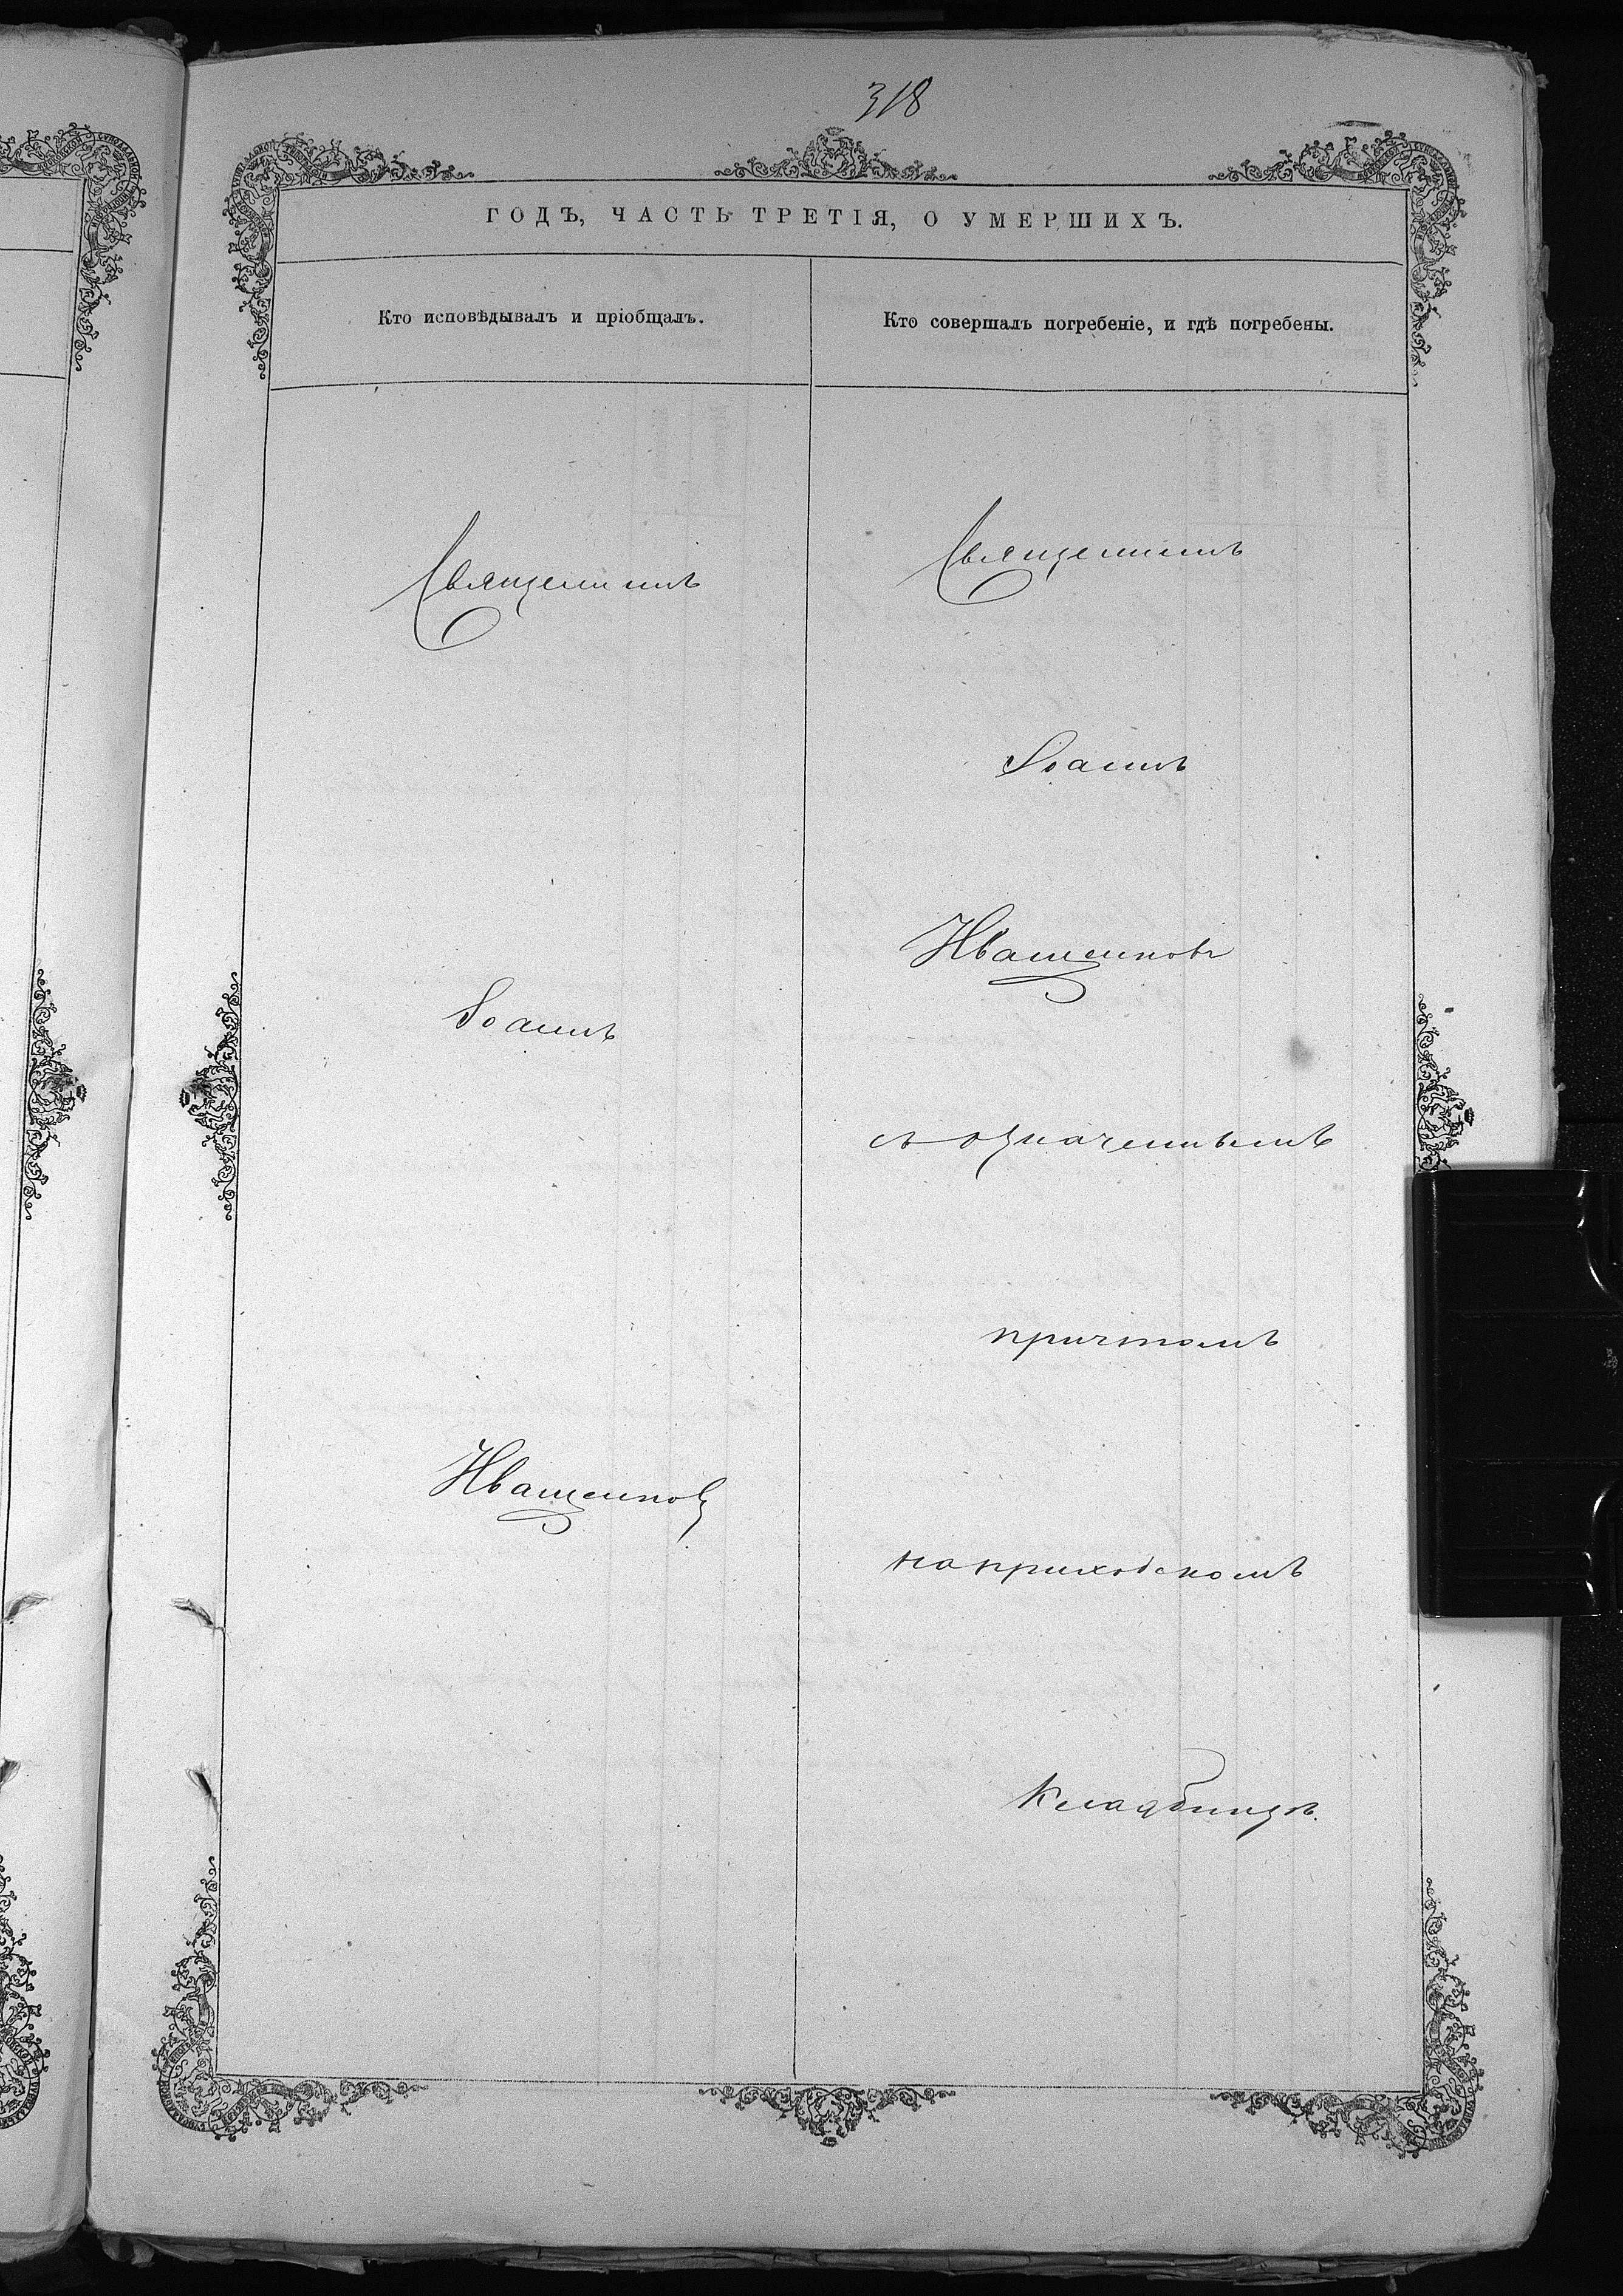 318
ГОДЪ, ЧАСТЬ ТРЕТІЯ, О УМЕРШИХЪ.
Кто исповѣдывалъ и пріобщалъ.
Священникъ
Іоаннъ
Иващенковъ
Кто совершалъ погребеніе, и гдѣ погребены.
Священникъ
Іоаннъ
Иващенковъ
съ означеннымъ
причтомъ
на приходскомъ
кладбищѣ.